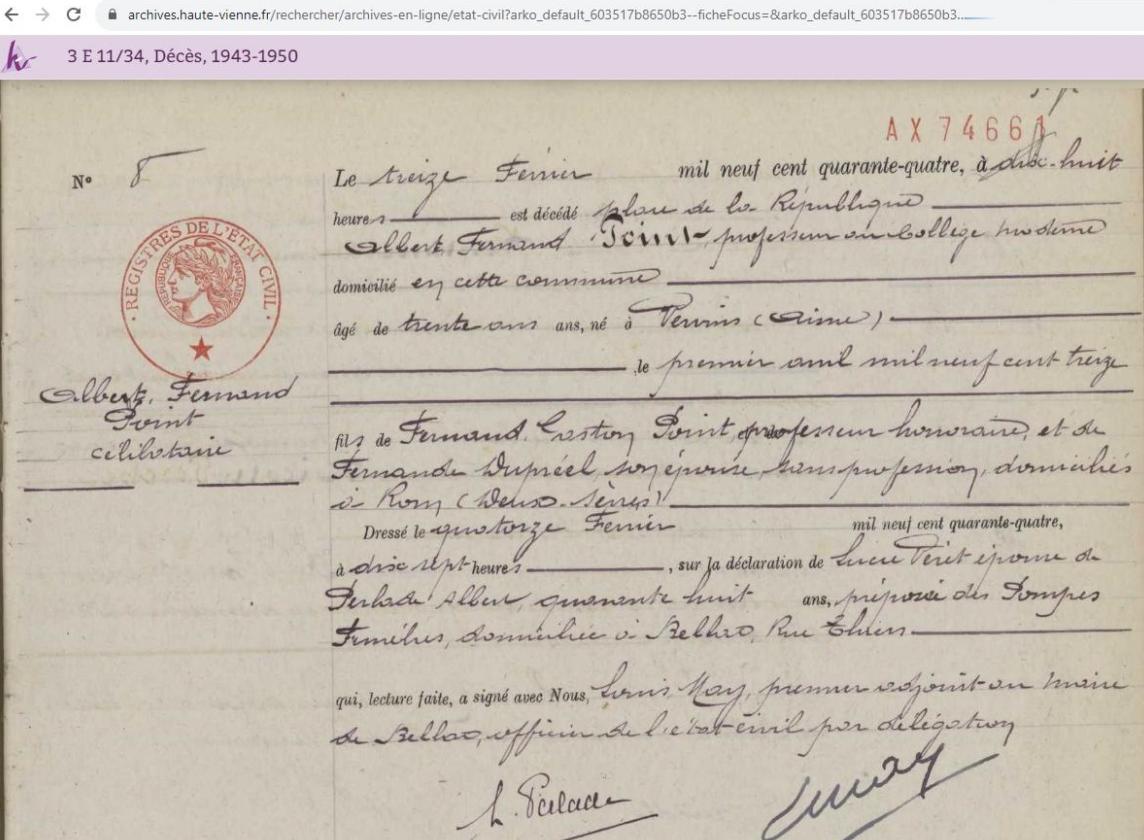 archives.haute-vienne.fr/rechercher/archives-en-ligne/etat-civil?arko_default_603517b8650b3--ficheFocus=&arko_default_603517b8650b3...
3 E 11/34, Décès, 1943-1950
AX 74661
N° 8
Le treize Février mil neuf cent quarante-quatre, à dix-huit
heures est décédé place de la République
Albert, Fernand Point, professeur au Collège moderne
domicilié en cette commune
âgé de trente ans ans, né à (Aisne)
, le premier avril mil neuf cent treize
REGISTRES DE L'ÉTAT CIVIL
RÉPUBLIQUE FRANÇAISE
Albert, Fernand
Point
célibataire
fils de Fernand, Gaston Point, professeur honoraire, et de
Fernande Dupréel, son épouse, sans profession, domiciliés
à Rom (Deux-Sèvres)
Dressé le quatorze Février mil neuf cent quarante-quatre,
à dix sept heures, sur la déclaration de Lucie épouse de
Albert, quarante huit ans, préposée des Pompes
Funèbres, domiciliée à Bellac, Rue Thiers
qui, lecture faite, a signé avec Nous, Louis May, premier adjoint au maire
de Bellac, officier de l'état-civil par délégation